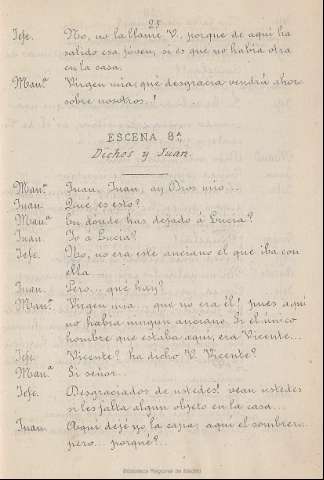 25
Jefe. No, no la llame V. porque de aqui ha
salido esa joven, si es que no habia otra
en la casa.
Man.ª Virgen mia; qué desgracia vendrá ahora
sobre nosotros!
ESCENA 8ª
Dichos y Juan.
Man.ª Juan, Juan, ay Dios mio...
Juan. Qué es esto?
Man.ª En donde has dejado á Lucia?
Juan. Yo á Lucia?
Jefe. No, no era este anciano el que iba con
ella...
Juan. Pero... qué hay?
Man.ª Virgen mia... que no era él! pues aqui
no habia ningun anciano. Si el único
hombre que estaba aqui, era Vicente...
Jefe. Vicente? ha dicho V. Vicente?
Man.ª Si señor...
Jefe. Desgraciados de ustedes! vean ustedes
si les falta algun objeto en la casa...
Juan. Aqui deje yo la capa; aqui el sombrero...
pero... porqué?
Biblioteca Regional de Madrid